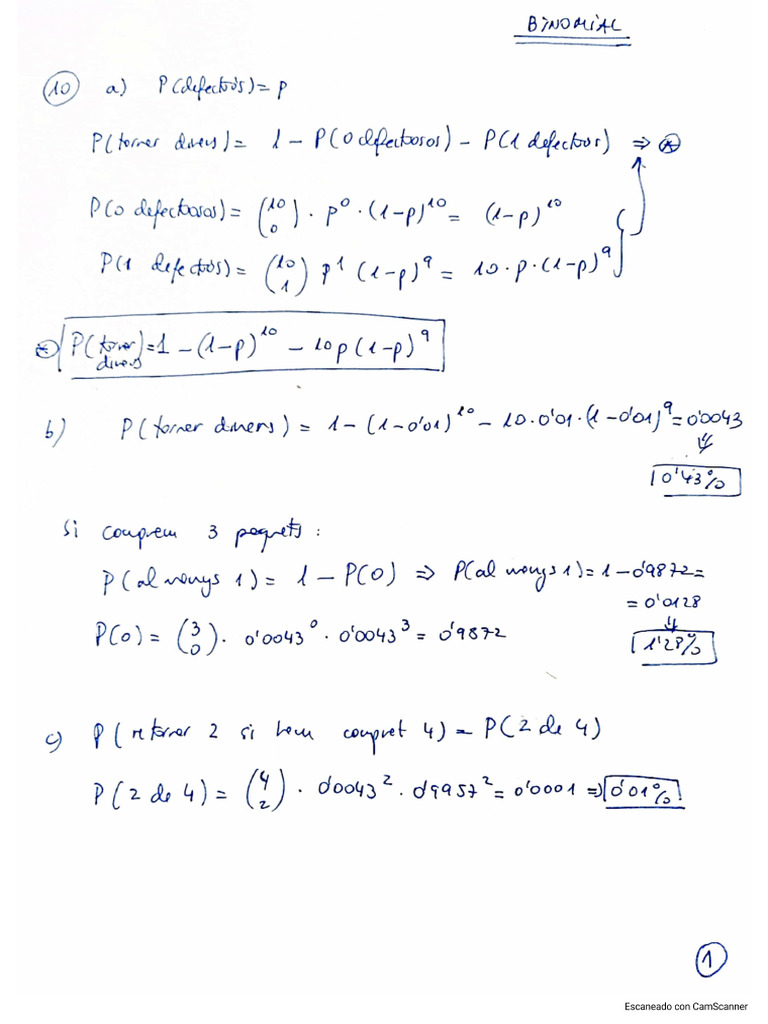 BINOMIAL
10 a) P(defectuós) = p
P(tornar diners) = 1 - P(0 defectuosos) - P(1 defectuós) ⇒ *
P(0 defectuosos) = (10 0) · p⁰ · (1-p)¹⁰ = (1-p)¹⁰
P(1 defectuós) = (10 1) p¹ (1-p)⁹ = 10 · p · (1-p)⁹
* P(tornar diners) = 1 - (1-p)¹⁰ - 10p(1-p)⁹
b) P(tornar diners) = 1 - (1-0'01)¹⁰ - 10·0'01·(1-0'01)⁹ = 0'0043
⇓
0'43%
Si comprem 3 paquets:
P(al menys 1) = 1 - P(0) ⇒ P(al menys 1) = 1 - 0'9872 =
= 0'0128
⇓
P(0) = (3 0) · 0'0043⁰ · 0'0043³ = 0'9872
1'28%
c) P(retornar 2 si hem comprat 4) = P(2 de 4)
P(2 de 4) = (4 2) · 0'0043² · 0'9957² = 0'0001 ⇒ 0'01%
1
Escaneado con CamScanner